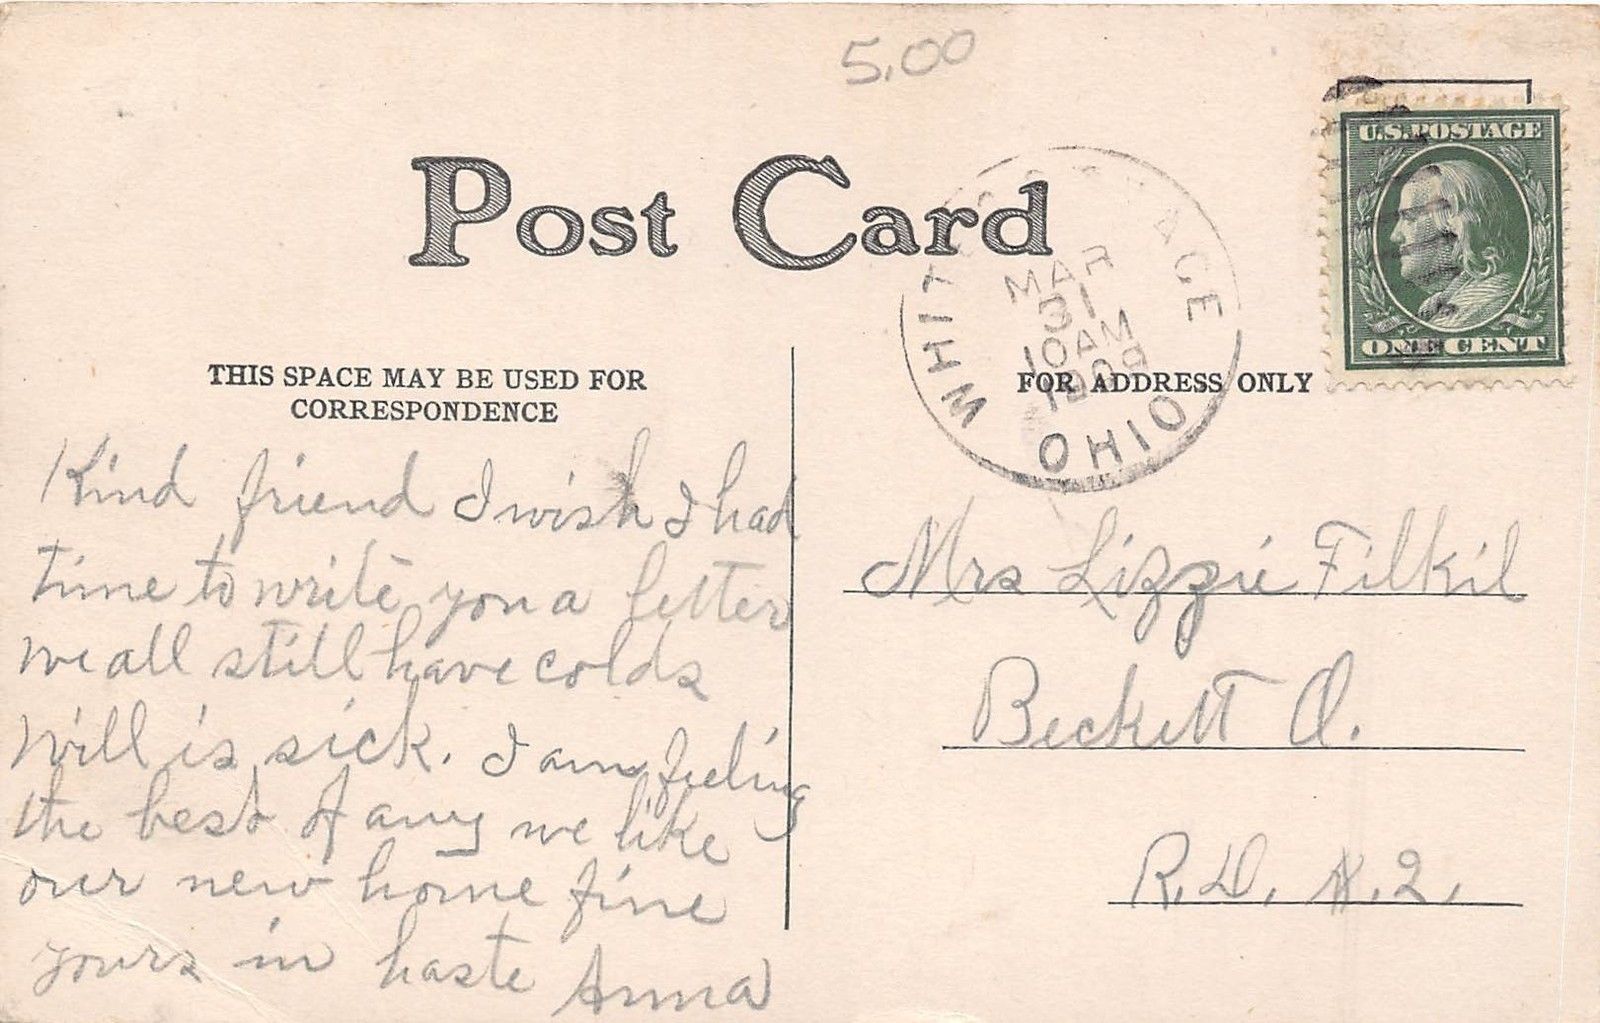 5.00
Post Card
U.S. POSTAGE
ONE CENT
MAR
31
10 AM
1909
OHIO
THIS SPACE MAY BE USED FOR
CORRESPONDENCE
FOR ADDRESS ONLY
Kind friend I wish I had
time to write you a letter
we all still have colds
Will is sick. I am feeling
the best of any we like
our new home fine
yours in haste Anna
Mrs Lizzie Filkil
Beckett O.
R.D. #.2.